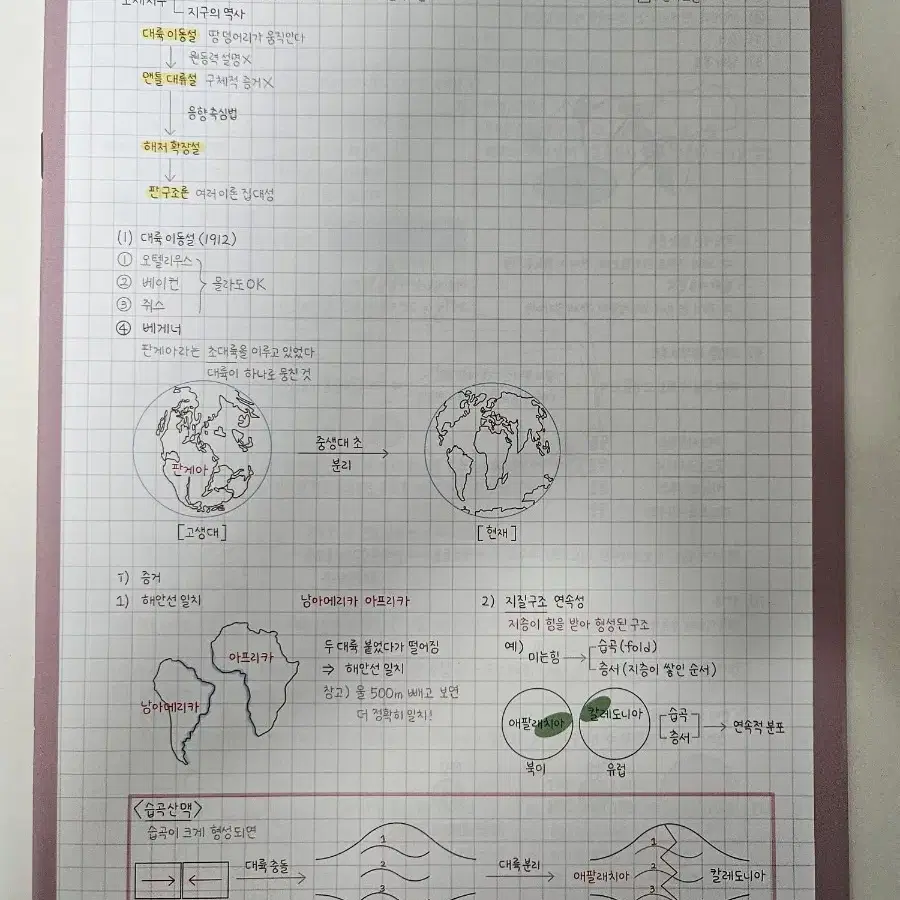 지구의 역사
대륙 이동설 땅 덩어리가 움직인다
원동력 설명X
맨틀 대류설 구체적 증거X
음향 측심법
해저 확장설
판 구조론 여러 이론 집대성
(1) 대륙 이동설 (1912)
① 오텔리우스
② 베이컨 몰라도OK
③ 쥐스
④ 베게너
판게아라는 초대륙을 이루고 있었다
대륙이 하나로 뭉친 것
판게아
중생대 초
분리
[고생대] [현재]
T) 증거
1) 해안선 일치 남아메리카 아프리카
아프리카
남아메리카
두 대륙 붙었다가 떨어짐
⇒ 해안선 일치
참고) 물 500m 빼고 보면
더 정확히 일치!
2) 지질구조 연속성
지층이 힘을 받아 형성된 구조
예) 미는힘 → 습곡(fold)
층서(지층이 쌓인 순서)
애팔래치아 칼레도니아 습곡
층서 → 연속적 분포
북미 유럽
<습곡산맥>
습곡이 크게 형성되면
대륙 충돌 대륙 분리
1 2 3
1 2 3
애팔래치아 칼레도니아